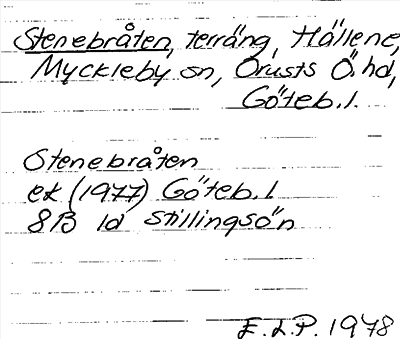 Stenebråten, terräng, Hällene,
Myckleby sn, Orusts Ö. hd,
Göteb. l.
Stenebråten
ek (1977) Göteb. l
8B 1d Stillingsön
E.L.P. 1978